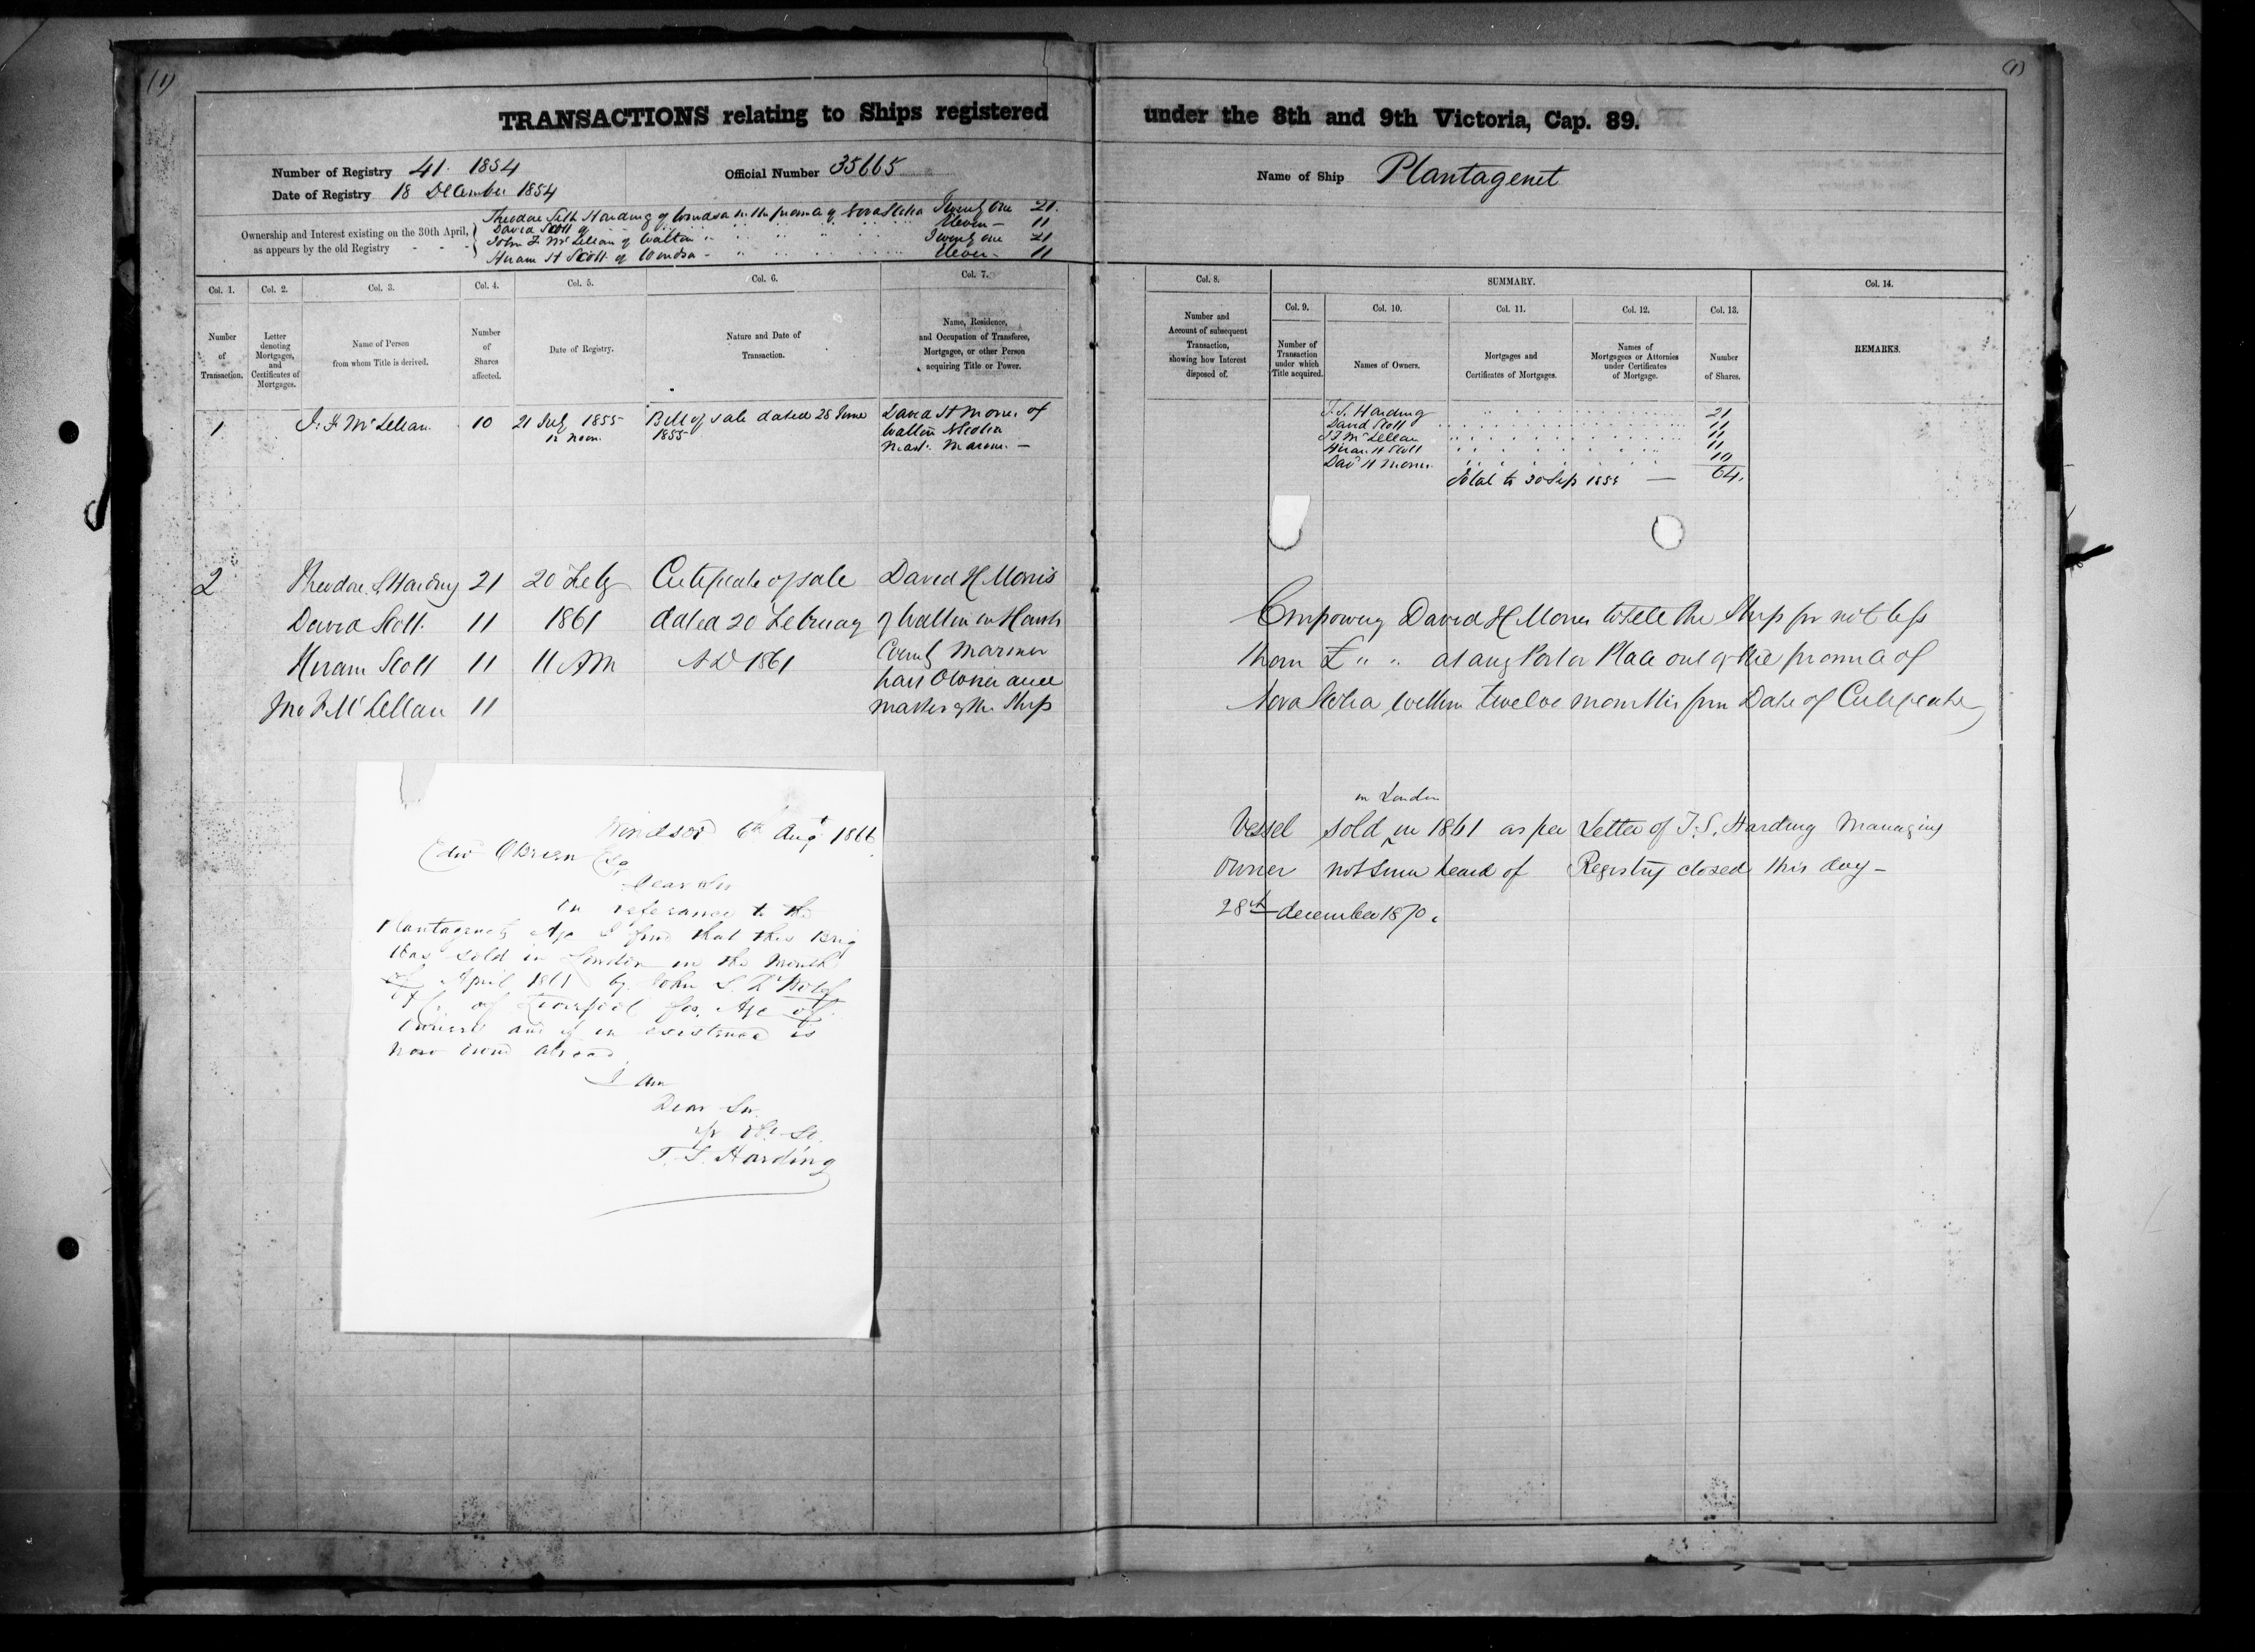 (1)
(1)
TRANSACTIONS relating to Ships registered under the 8th and 9th Victoria, Cap. 89.
Number of Registry 41. 1854
Official Number 35665
Name of Ship Plantagenet
Date of Registry 18 December 1854
Ownership and Interest existing on the 30th April,
as appears by the old Registry
Theodore Seth Harding of Windsor in the province of Nova Scotia Twenty One 21.
David Scott of Eleven 11
John F McLellan of Walton Twenty one 21
Hiram H Scott of Windsor Eleven 11
Col. 1.
Number
of
Transaction.
Col. 2.
Letter
denoting
Mortgages,
and
Certificates of
Mortgages.
Col. 3.
Name of Person
from whom Title is derived.
Col. 4.
Number
of
Shares
affected.
Col. 5.
Date of Registry.
Col. 6.
Nature and Date of
Transaction.
Col. 7.
Name, Residence,
and Occupation of Transferee,
Mortgagee, or other Person
acquiring Title or Power.
Col. 8.
Number and
Account of subsequent
Transaction,
showing how Interest
disposed of.
SUMMARY.
Col. 9.
Number of
Transaction
under which
Title acquired.
Col. 10.
Names of Owners.
Col. 11.
Mortgages and
Certificates of Mortgages.
Col. 12.
Names of
Mortgagees or Attornies
under Certificates
of Mortgage.
Col. 13.
Number
of Shares.
Col. 14.
REMARKS.
1 J. F. McLellan 10
21 July 1855
12 noon.
Bill of sale dated 28 June
1855
David H Morris of
Walton N Scotia
Mast. Marin. —
T. S. Harding 21
David Scott 11
J F McLellan 11
Hiram H Scott 11
Dav H Morris 10
Total to 30 Sep 1855 — 64.
2 Theodore S Harding 21 20 Feby Certificate of sale David H Morris
David Scott. 11 1861 dated 20 February of Walton in Hants
Hiram Scott 11 11 AM AD 1861 County Mariner
part Owner and
Jno F McLellan 11 master of the Ship
Empowering David H Morris to sell the Ship for not less
than £ " " at any Port or Place out of the province of
Nova Scotia within twelve months from Date of Certificate
in London
Vessel sold in 1861 as per Letter of T. S. Harding Managing
Owner not since heard of Registry closed this day —
28th december 1870.
Windsor 6th Augt 1866
Edw OBrien Esq
Dear Sir
In referance to the
Plantagenets Age I find that this Brig
Was sold in London in the Month
of April 1861 by John S. DeWolf
& Co of Liverpool for Age of
Owners and if in existence is
Now owned abroad.
I am
Dear Sir
T. S. Harding